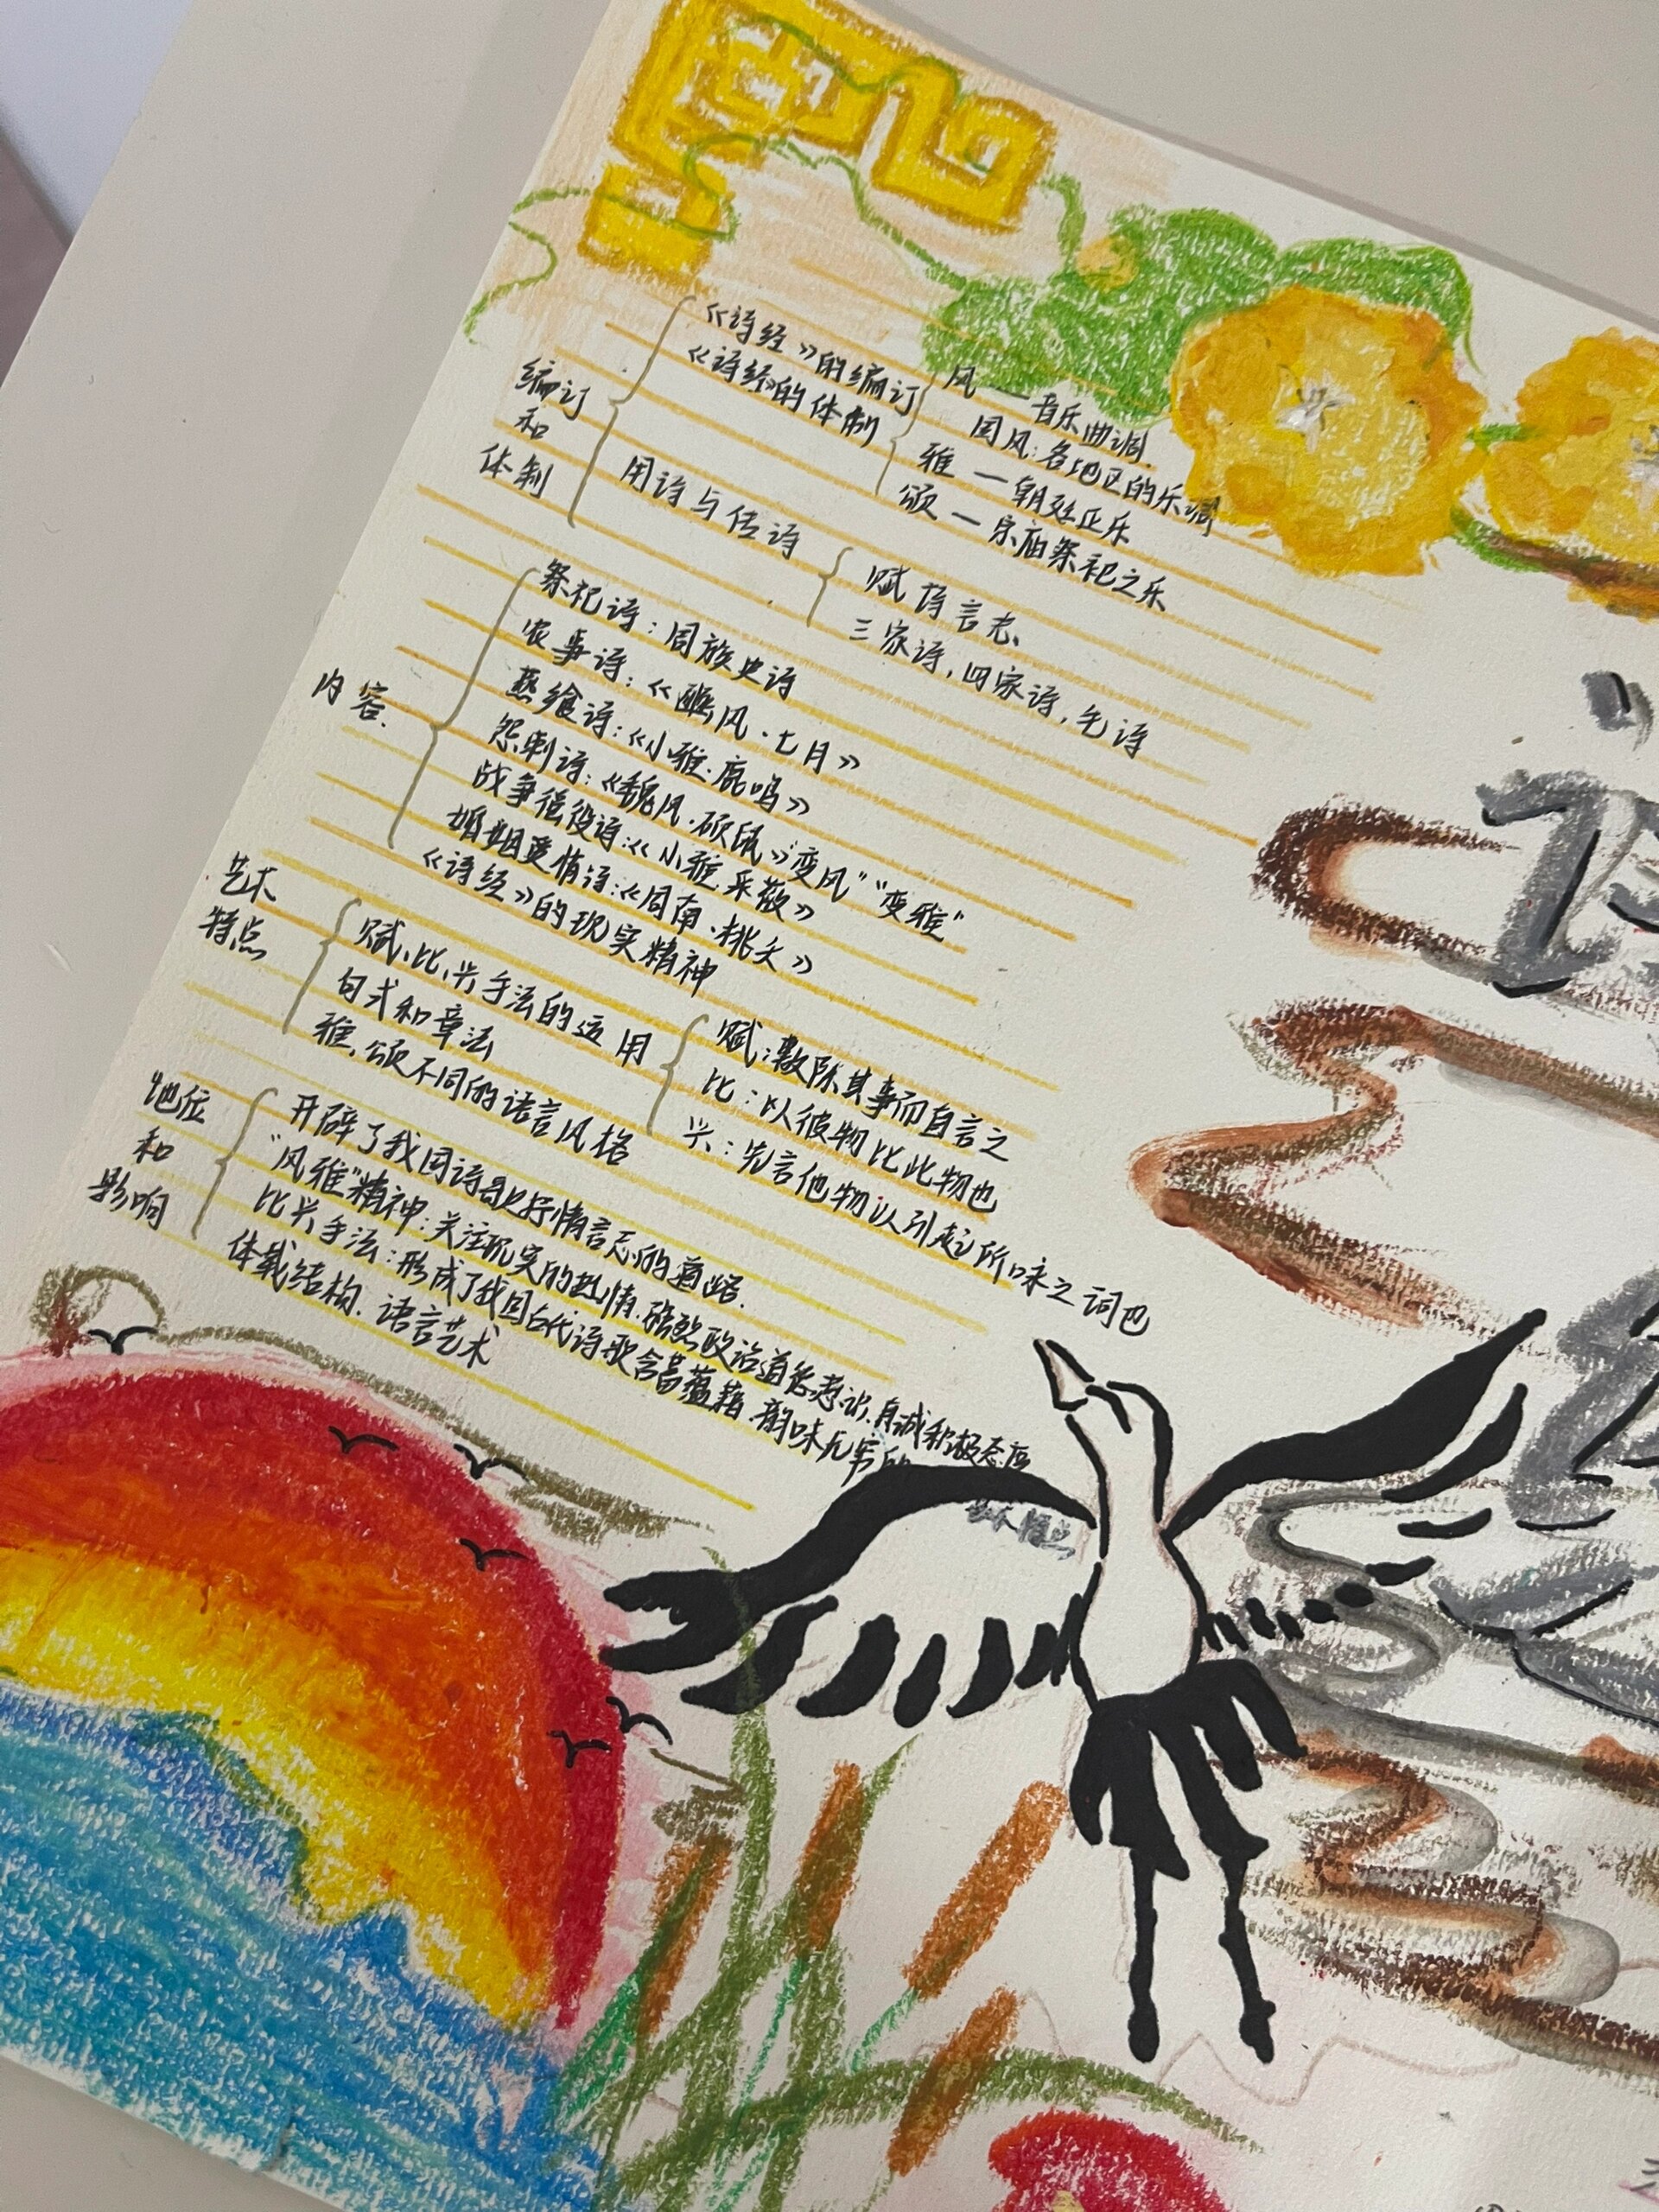 编订
和
体制
《诗经》的编订
《诗经》的体制
风 — 音乐曲调.
国风:各地区的乐调
雅 — 朝廷正乐
颂 — 宗庙祭祀之乐
用诗与传诗
赋诗言志、
三家诗,四家诗,毛诗
内容.
祭祀诗:周族史诗
农事诗:《豳风·七月》
燕飨诗:《小雅·鹿鸣》
怨刺诗:《魏风·硕鼠》“变风”“变雅”
战争徭役诗:《小雅.采薇》
婚姻爱情诗:《周南·桃夭》
《诗经》的现实精神
艺术
特点
赋、比、兴手法的运用
赋:敷陈其事而自言之
比:以彼物比此物也
兴:先言他物以引起所咏之词也
句式和章法
雅、颂不同的语言风格
地位
和
影响
开辟了我国诗歌抒情言志的道路.
“风雅”精神:关注现实的热情.强烈政治道德意识.真诚积极态度
比兴手法:形成了我国古代诗歌含蓄蕴藉.韵味无穷的
体裁结构.语言艺术